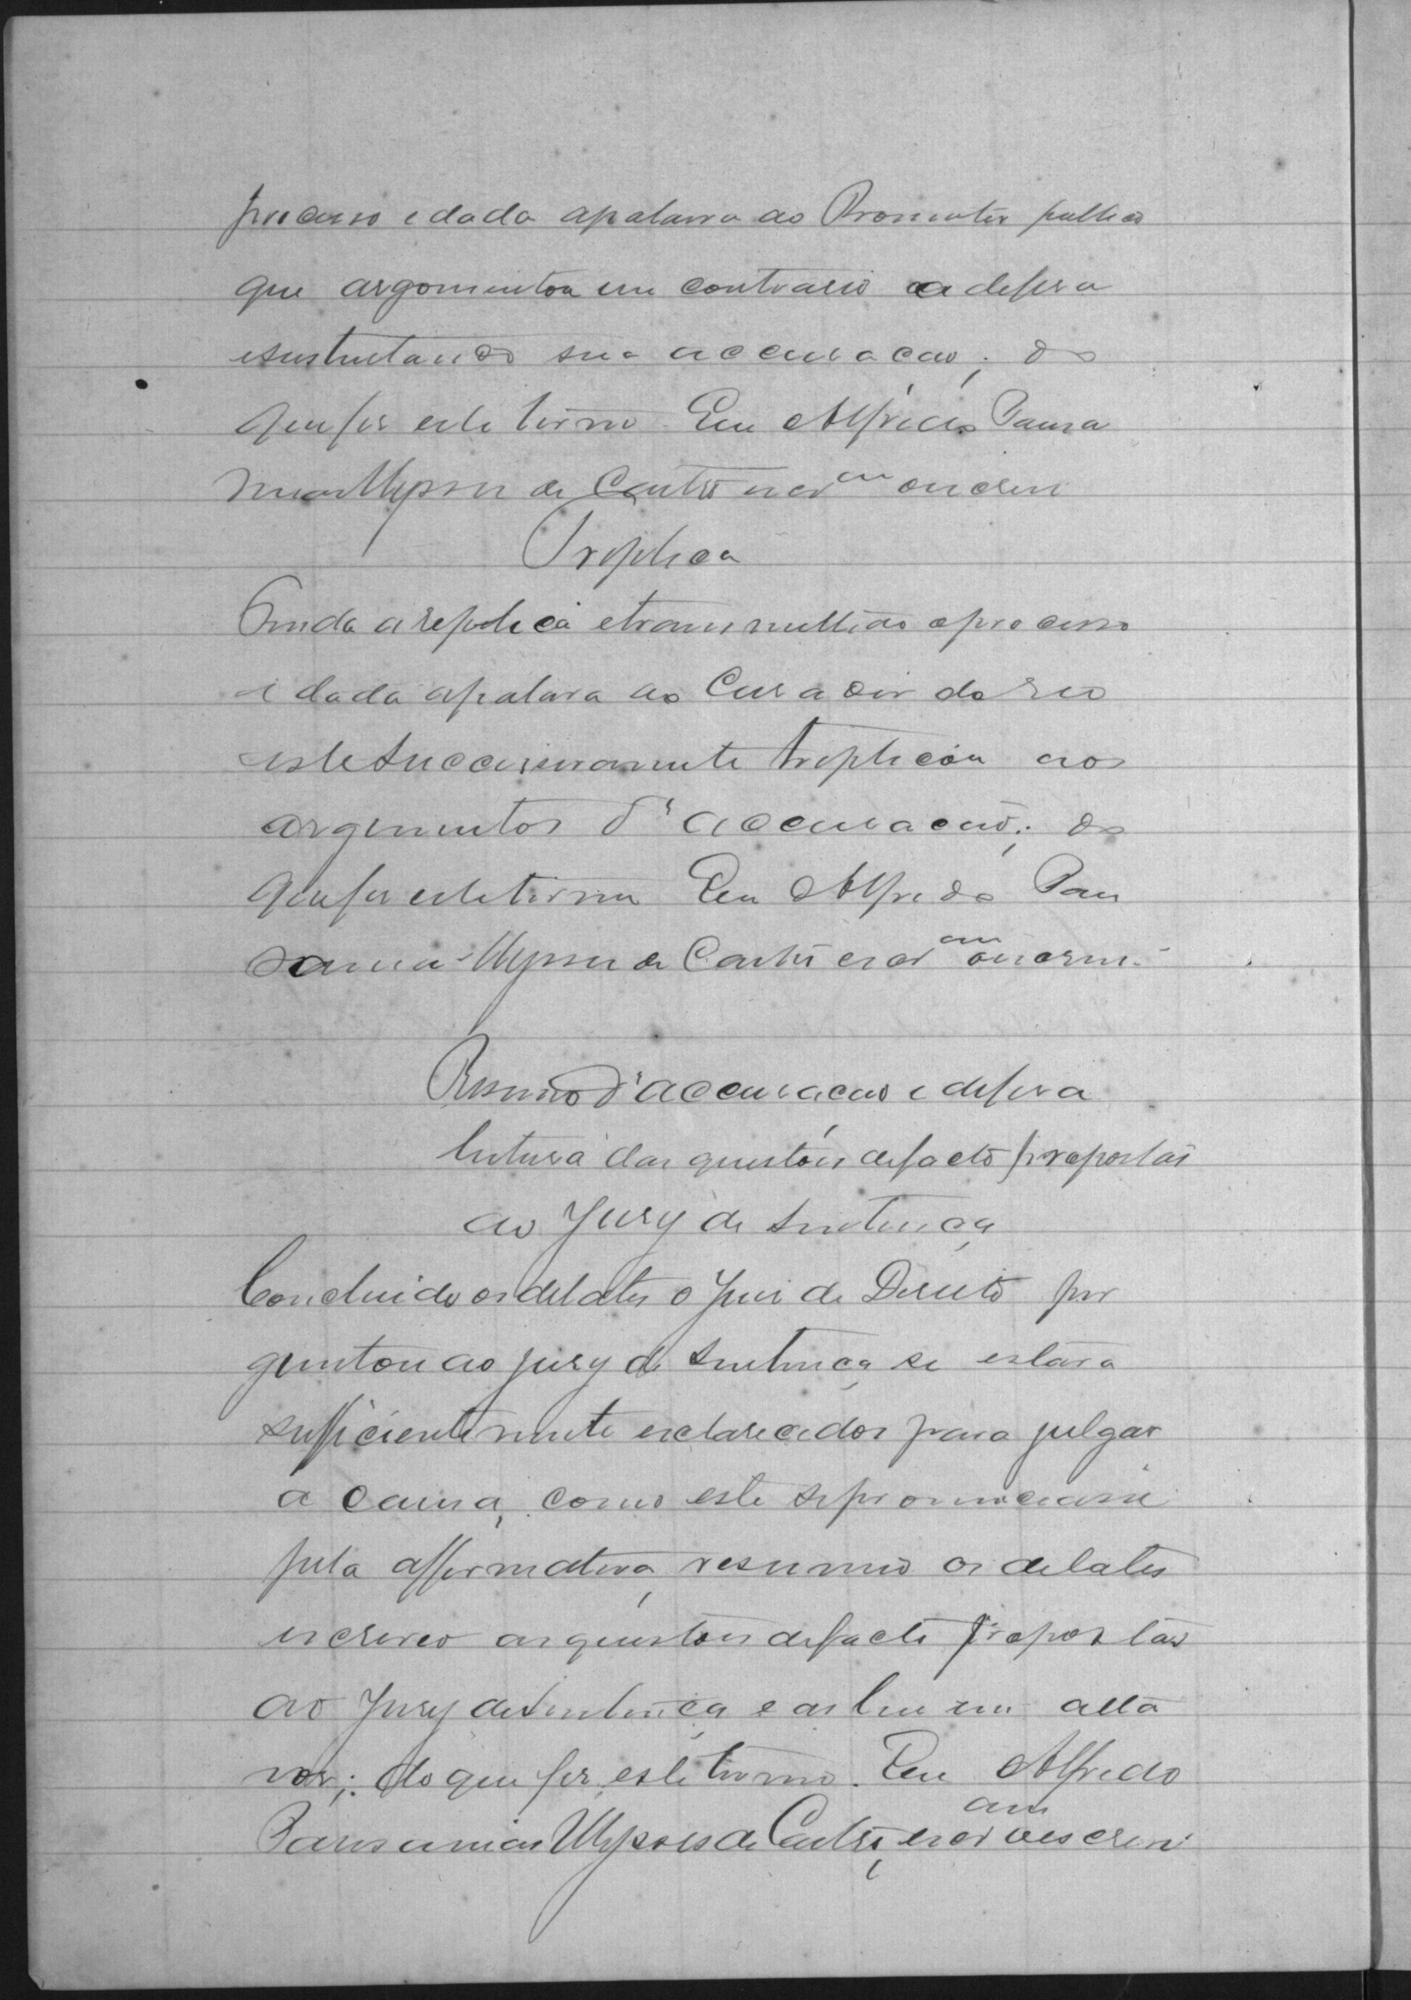 processo e dada a palavra ao Promotor publico
que argomentou em contrario a defesa
e sustentando sua accusação; do
que fis este termo. Eu Alfredo Pausa
nias Ulysses de Castro escr am o escrevi
Treplica
Finda a replica e transmittido o processo
e dada a palavra ao Curador do reo
este successivamente treplicou aos
argumentos d'accusação; do
que fis este termo Eu Alfredo Pau
sania Ulysses de Castro escr am o escrevi
Resumo d'accusação e defesa
leitura das questões de facto propostas
ao Jury de sentença
Concluido os debates o Juis de Direito per
guntou ao jury de sentença se estava
sufficientemente esclarecidos para julgar
a causa, como este se pronunciasse
pela affirmativa, resumio os debates
escreveo as questões de facto propostas
ao Jury de sentença e as leu em alta
vos; do que fis este termo. Eu Alfredo
Pausanias Ulysses de Castro, escr am o escrevi